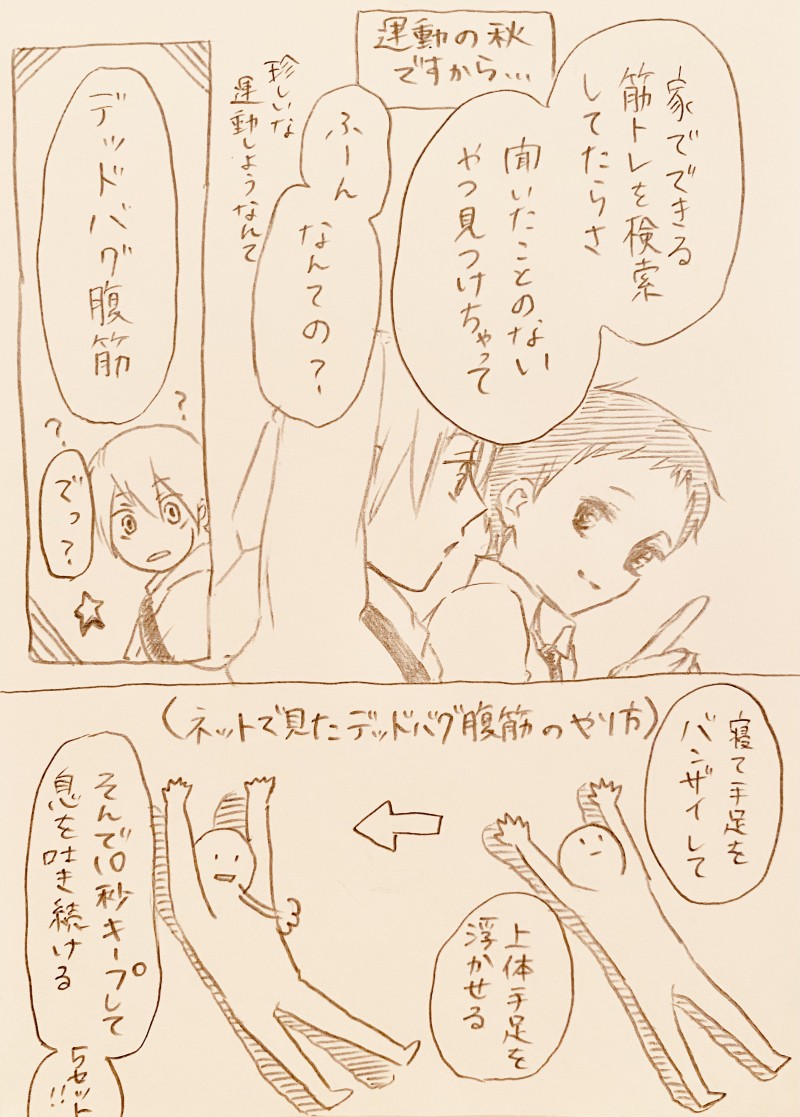 運動の秋
ですから…
家でできる
筋トレを検索
してたらさ
聞いたことのない
やつ見つけちゃって
ふーん
なんての?
珍しいな
運動しようなんて
デッドバグ腹筋
?
?
でっ?
(ネットで見たデッドバグ腹筋のやり方)
寝て手足を
バンザイして
上体手足を
浮かせる
そんで10秒キープして
息を吐き続ける
5セット
!!